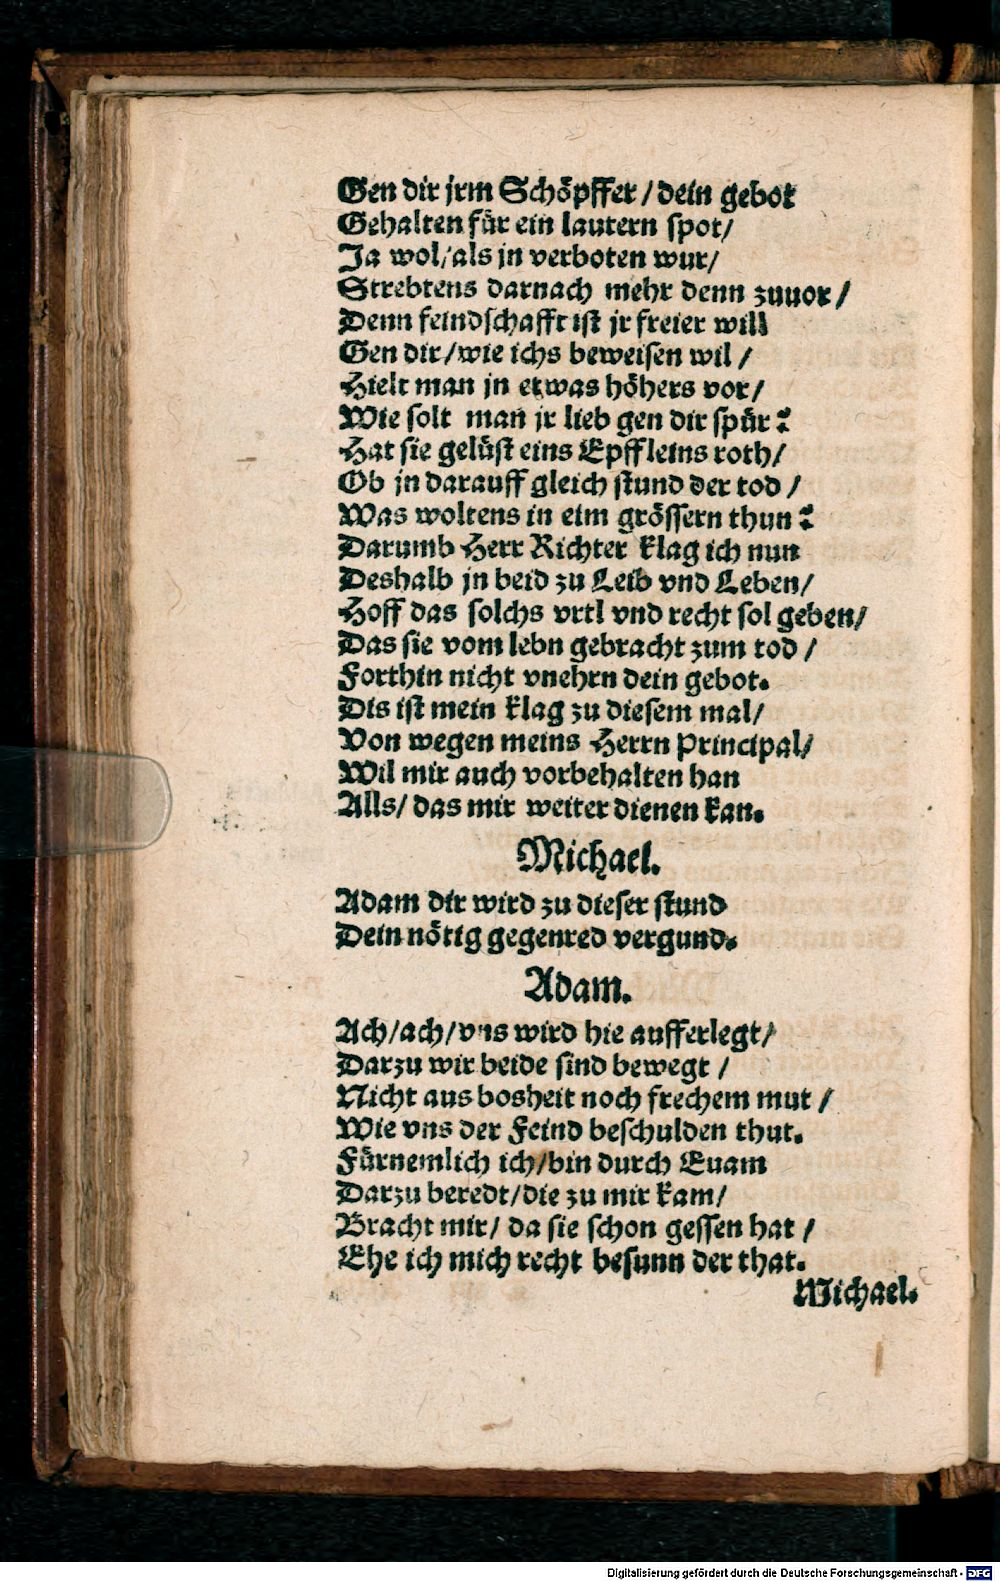 Gen dir jrm Schöpffer / dein gebot
Gehalten für ein lautern spot/
Ja wol/als jn verboten wur/
Strebtens darnach mehr denn zuuor /
Denn feindschafft ist jr freier will
Gen dir/wie ichs beweisen wil /
Hielt man jn etwas höhers vor/
Wie solt man jr lieb gen dir spür?
Hat sie gelüst eins Epffleins roth/
Ob jn darauff gleich stund der tod /
Was woltens in eim grössern thun?
Darumb Herr Richter klag ich nun
Deshalb jn beid zu Leib vnd Leben/
Hoff das solchs vrtl vnd recht sol geben/
Das sie vom lebn gebracht zum tod /
Forthin nicht vnehrn dein gebot.
Dis ist mein klag zu diesem mal/
Von wegen meins Herrn Principal/
Wil mir auch vorbehalten han
Alls/ das mir weiter dienen kan.
Michael.
Adam dir wird zu dieser stund
Dein nötig gegenred vergund.
Adam.
Ach/ach/vns wird hie aufferlegt/
Darzu wir beide sind bewegt /
Nicht aus bosheit noch frechem mut /
Wie vns der Feind beschulden thut.
Fürnemlich ich/bin durch Euam
Darzu beredt/die zu mir kam/
Bracht mir/ da sie schon gessen hat /
Ehe ich mich recht besunn der that.
Michael.
Digitalisierung gefördert durch die Deutsche Forschungsgemeinschaft - DFG